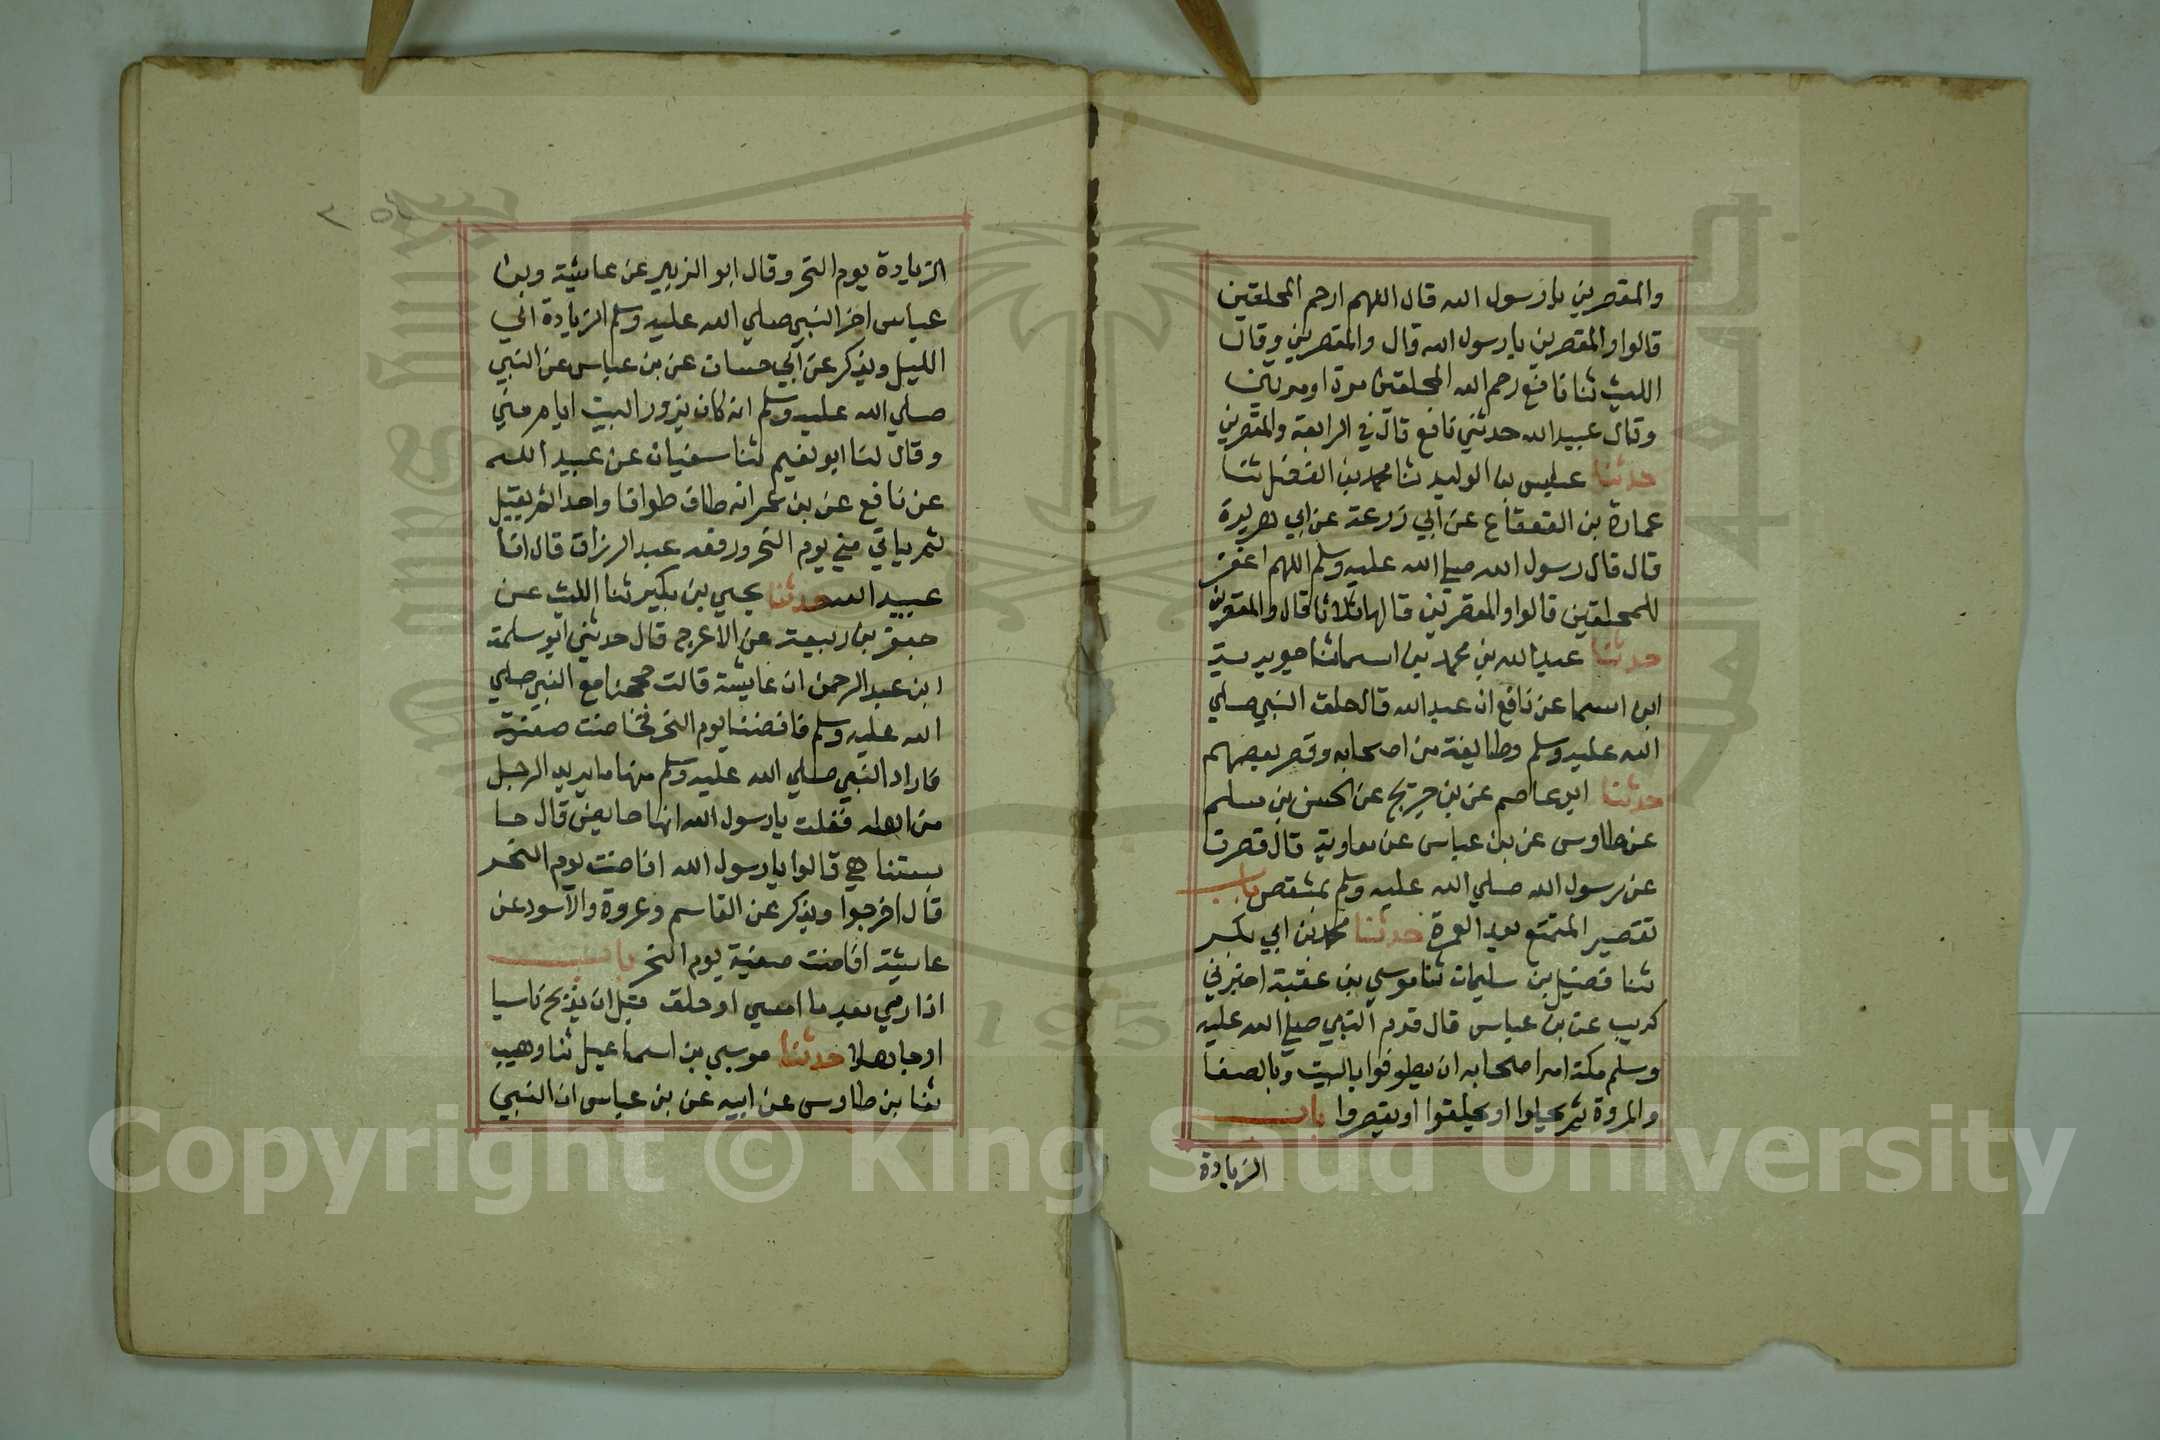 والمقصرين يا رسول الله قال اللهم ارحم المحلقين
قالوا والمقصرين يا رسول الله قال والمقصرين وقال
الليث ثنا نافع رحم الله المحلقين مرة او مرتين
وقال عبيد الله حدثني نافع قال في الرابعة والمقصرين
حدثنا عياش بن الوليد ثنا محمد بن الفضل ثنا
عمارة بن القعقاع عن ابي زرعة عن ابي هريرة
قال قال رسول الله صلي الله عليه وسلم اللهم اغفر
للمحلقين قالوا والمقصرين قالها ثلاثا قال والمقصرين
حدثنا عبد الله بن محمد بن اسما ثنا جويرية
ابن اسما عن نافع ان عبد الله قال حلق النبي صلي
الله عليه وسلم وطايفة من اصحابه وقصر بعضهم
حدثنا ابو عاصم عن بن جريج عن الحسن بن مسلم
عن طاوس عن بن عباس عن معاوية قال قصرت
عن رسول الله صلي الله عليه وسلم بمشقص باب
تقصير المتمتع بعد العمرة حدثنا محمد بن ابي بكر
ثنا فضيل بن سليمان ثنا موسي بن عقبة اخبرني
كريب عن بن عباس قال قدم النبي صلي الله عليه
وسلم مكة امر اصحابه ان يطوفوا بالبيت وبالصفا
والمروة ثم يحلوا او يحلقوا او يقصروا باب
الزيادة
الزيادة يوم النحر وقال ابو الزبير عن عايشة وبن
عباس اخر النبي صلي الله عليه وسلم الزيادة الي
الليل ويذكر عن ابي حسان عن بن عباس عن النبي
صلي الله عليه وسلم انه كان يزور البيت ايام مني
وقال لنا ابو نعيم ثنا سفيان عن عبيد الله
عن نافع عن بن عمر انه طاف طوافا واحدا ثم يقيل
ثم ياتي مني يوم النحر ورفعه عبد الرزاق قال انا
عبيد الله حدثنا يحيي بن بكير ثنا الليث عن
جعفر بن ربيعة عن الاعرج قال حدثني ابو سلمة
ابن عبد الرحمن ان عايشة قالت حججنا مع النبي صلي
الله عليه وسلم فافضنا يوم النحر فحاضت صفية
فاراد النبي صلي الله عليه وسلم منها ما يريد الرجل
من اهله فقلت يا رسول الله انها حايض قال حا
بستنا هي قالوا يا رسول الله افاضت يوم النحر
قال اخرجوا ويذكر عن القاسم وعروة والاسود عن
عايشة افاضت صفية يوم النحر باب
اذا رمي بعد ما امسي او حلق قبل ان يذبح ناسيا
او جاهلا حدثنا موسي بن اسماعيل ثنا وهيب
ثنا بن طاوس عن ابيه عن بن عباس ان النبي
Copyright © King Saud University
1957